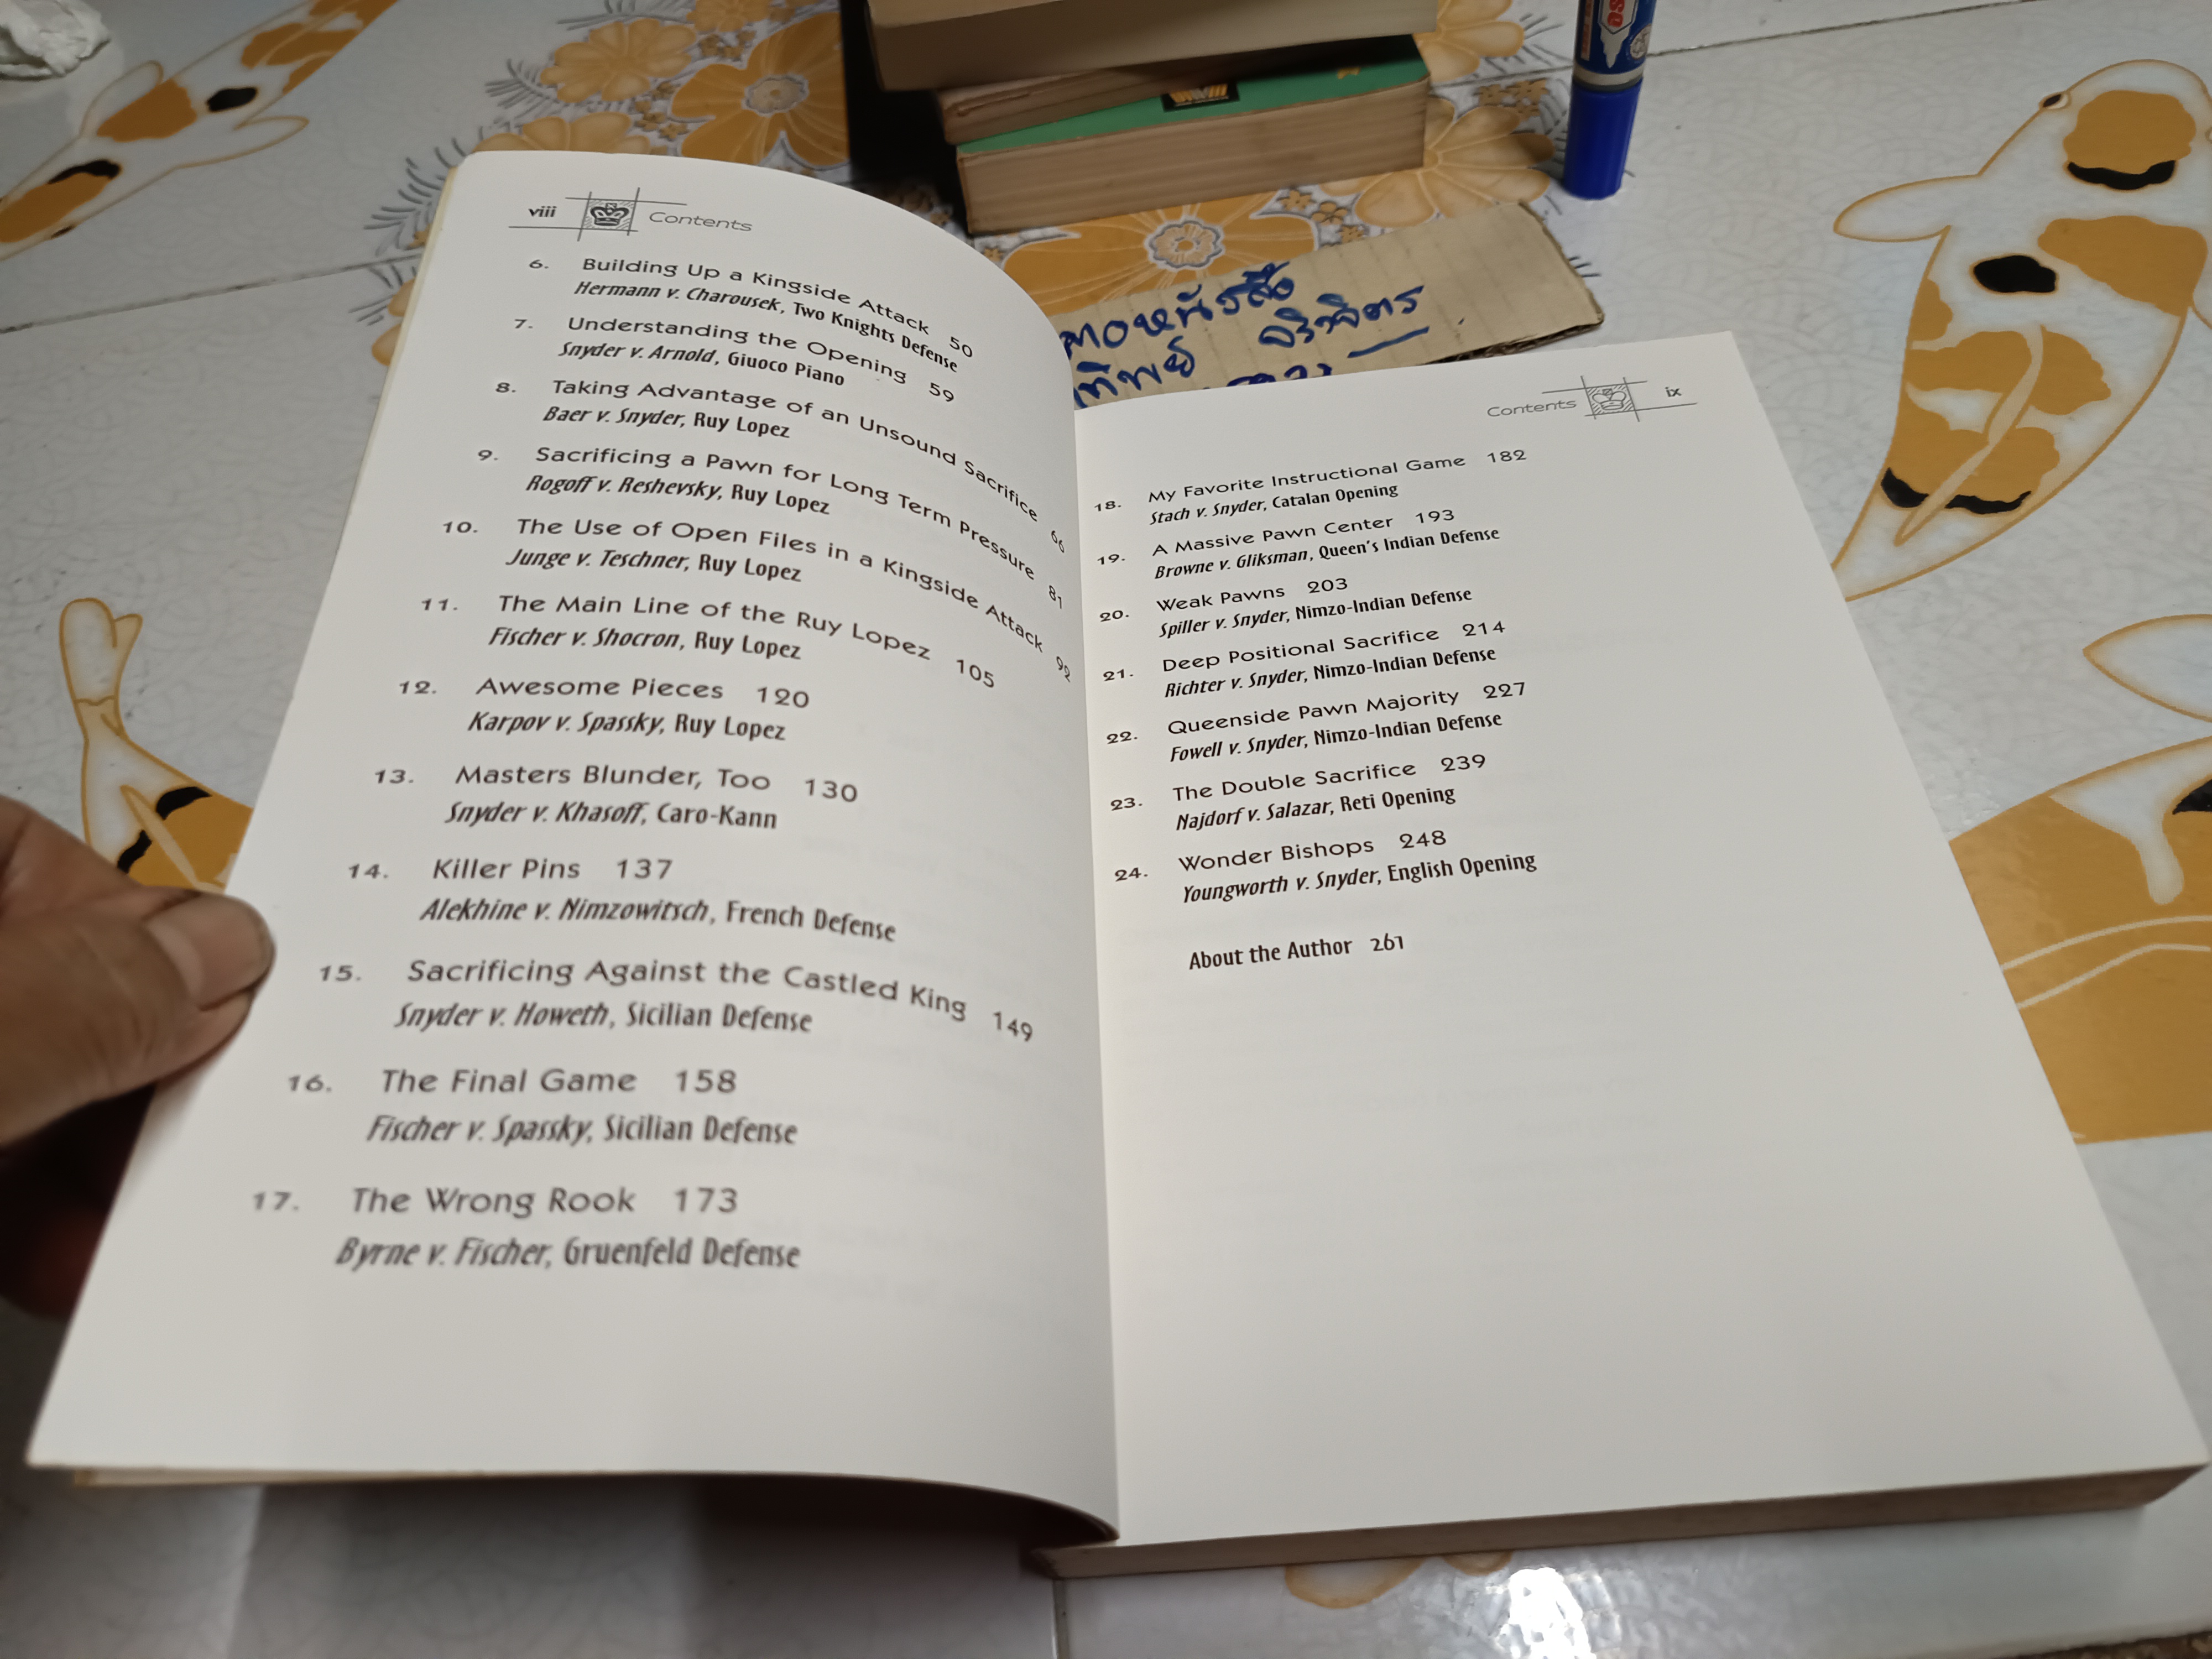 viii Contents
6. Building Up a Kingside Attack 50
Hermann v. Charousek, Two Knights Defense
7. Understanding the Opening 59
Snyder v. Arnold, Giuoco Piano
8. Taking Advantage of an Unsound Sacrifice 66
Baer v. Snyder, Ruy Lopez
9. Sacrificing a Pawn for Long Term Pressure 81
Rogoff v. Reshevsky, Ruy Lopez
10. The Use of Open Files in a Kingside Attack 92
Junge v. Teschner, Ruy Lopez
11. The Main Line of the Ruy Lopez 105
Fischer v. Shocron, Ruy Lopez
12. Awesome Pieces 120
Karpov v. Spassky, Ruy Lopez
13. Masters Blunder, Too 130
Snyder v. Khasoff, Caro-Kann
14. Killer Pins 137
Alekhine v. Nimzowitsch, French Defense
15. Sacrificing Against the Castled King 149
Snyder v. Howeth, Sicilian Defense
16. The Final Game 158
Fischer v. Spassky, Sicilian Defense
17. The Wrong Rook 173
Byrne v. Fischer, Gruenfeld Defense
Contents ix
18. My Favorite Instructional Game 182
Stach v. Snyder, Catalan Opening
19. A Massive Pawn Center 193
Browne v. Gliksman, Queen's Indian Defense
20. Weak Pawns 203
Spiller v. Snyder, Nimzo-Indian Defense
21. Deep Positional Sacrifice 214
Richter v. Snyder, Nimzo-Indian Defense
22. Queenside Pawn Majority 227
Fowell v. Snyder, Nimzo-Indian Defense
23. The Double Sacrifice 239
Najdorf v. Salazar, Reti Opening
24. Wonder Bishops 248
Youngworth v. Snyder, English Opening
About the Author 261